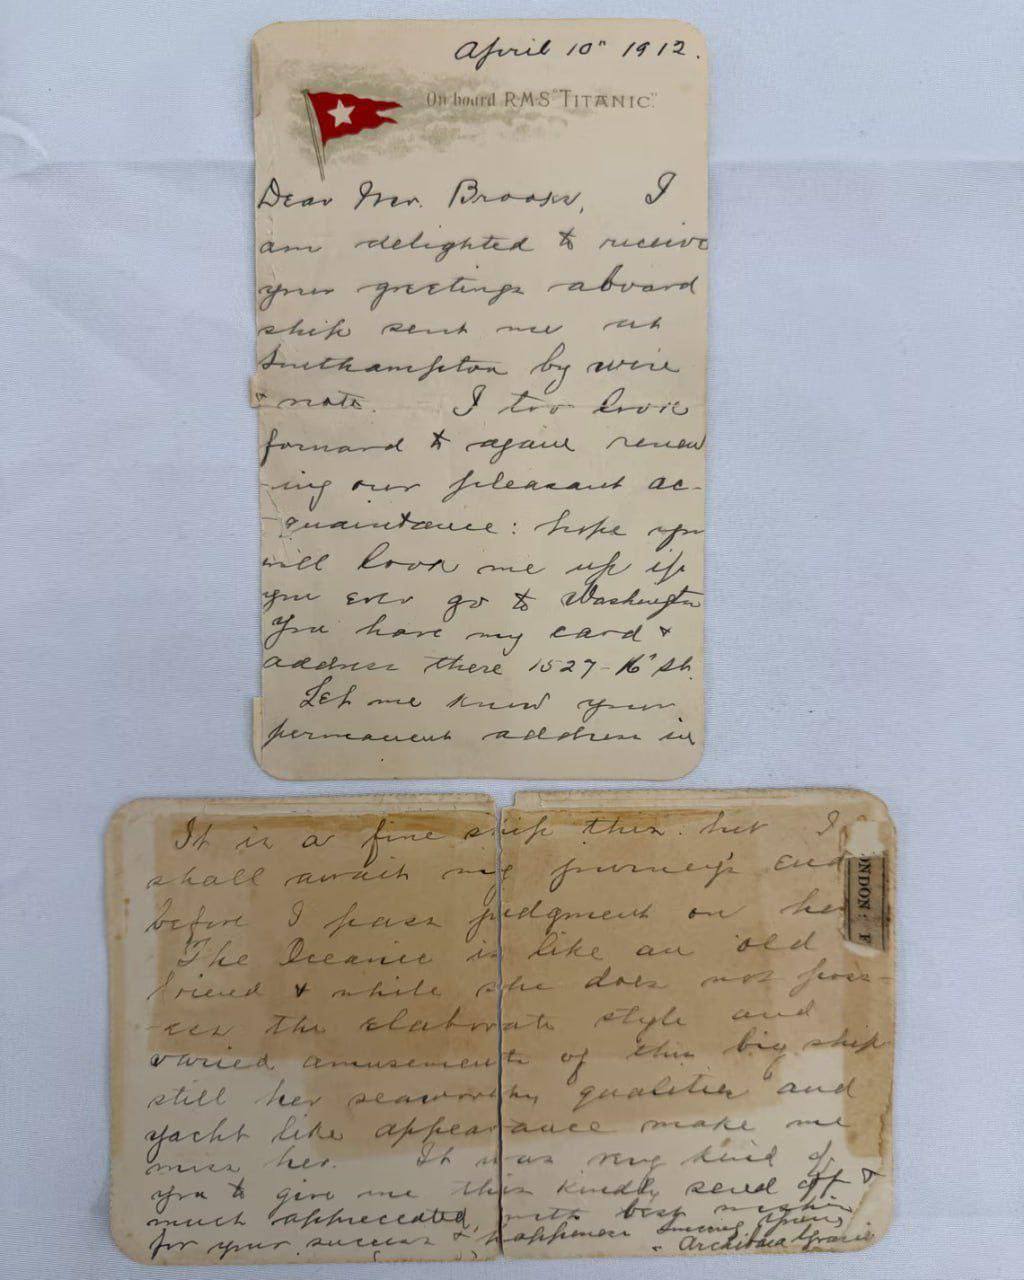 April 10" 1912.
On board RMS "TITANIC".
Dear Mr. Brooks, I
am delighted to receive
your greetings aboard
ship sent me at
Southampton by wire
& note. I too look
forward to again renew
-ing our pleasant ac-
-quaintance: hope you
will look me up if
you ever go to Washington
You have my card &
address there 1527-16" St.
Let me know your
permanent address in
It is a fine ship this but I
shall await my journey's end
before I pass judgment on her
ONDON: F
The Oceanic is like an old
friend & while she does not poss-
-ess the elaborate style and
varied amusements of this big ship
still her seaworthy qualities and
yacht like appearance make me
miss her. It was very kind of
you to give me this kindly send off &
much appreciated, with best wishes
for your success & happiness Sincerely Yours
Archibald Gracie